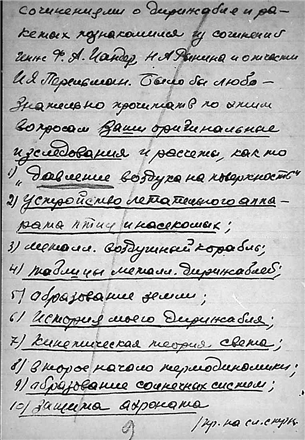 сочинениями о дирижабле и ра-
кетах познакомился из сочинений
инж. Ф. А. Цандер, Н А Рынина и отчасти
И Я Перельман. Было бы любо-
знательно прочитать по этим
вопросам Ваши оригинальные
изследования и расчеты, как то
1) „давление воздуха на поверхность"
2) устройство летательного аппа-
рата птиц и насекомых;
3) металл. воздушный корабль;
4) таблицы металл. дирижаблей;
5) образование земли;
6) История моего дирижабля;
7) кинетическая теория света;
8) второе начало термодинамики;
9) образование солнечных систем;
10) Защита аэроната
/пр. на сл. стр.